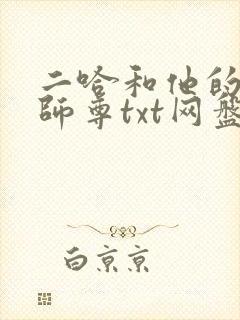 二哈和他的
師尊txt网盘
白京京